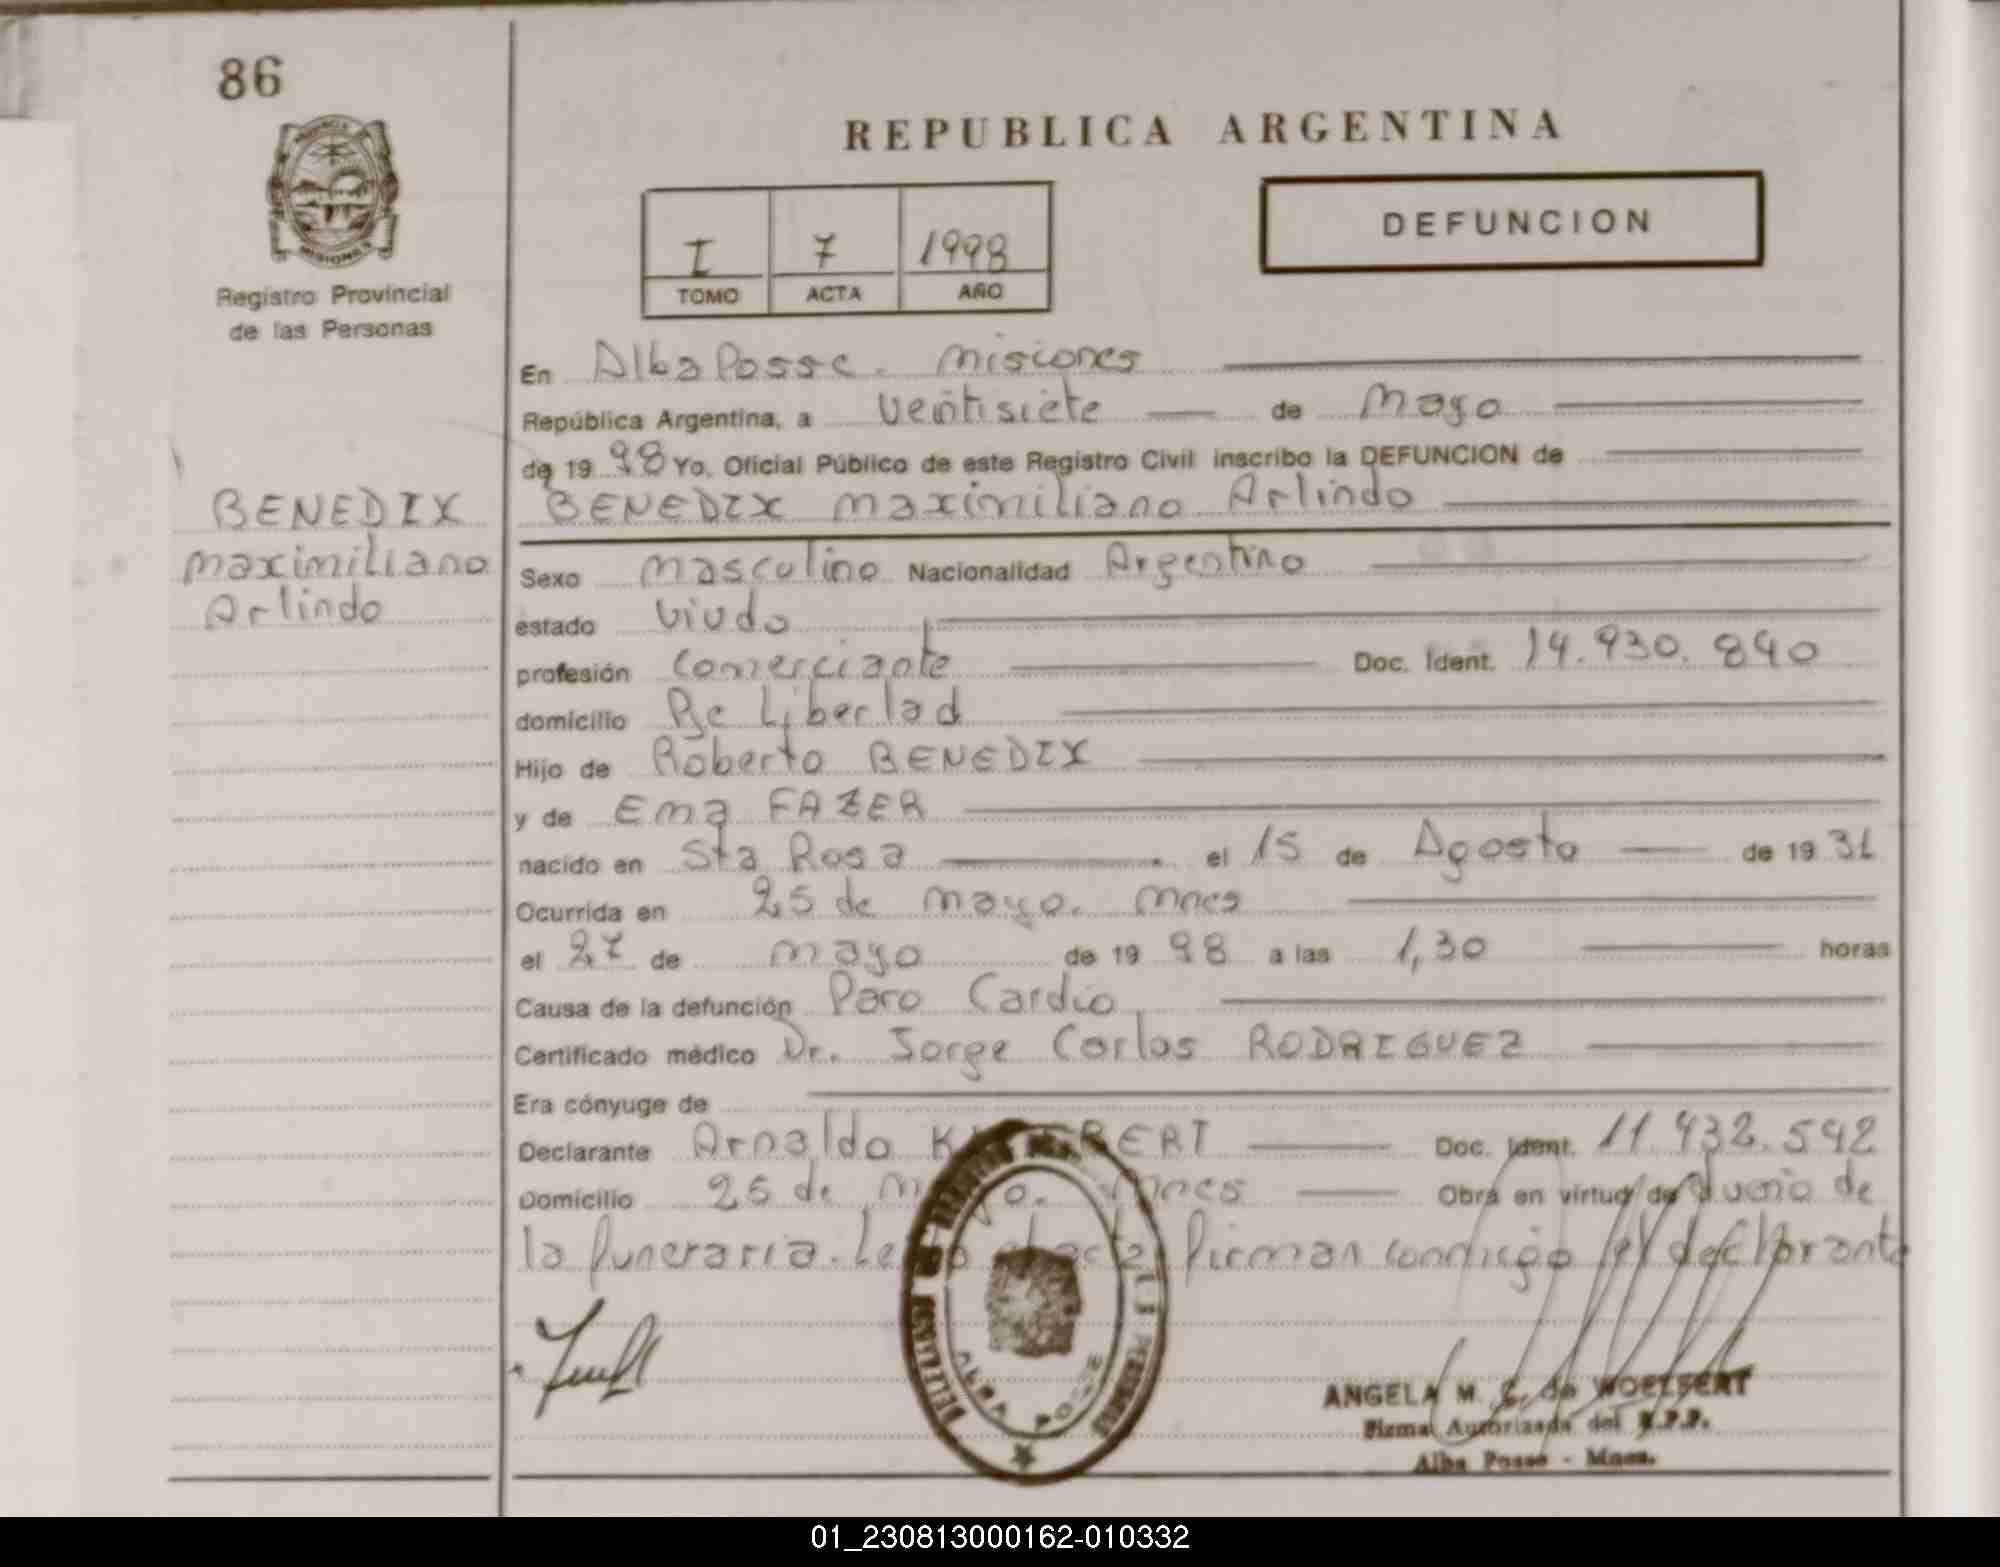 86
REPUBLICA ARGENTINA
DEFUNCION
I 7 1998
TOMO ACTA AÑO
Registro Provincial
de las Personas
BENEDIX
Maximiliano
Arlindo
En Alba Posse. Misiones
República Argentina, a Veintisiete de Mayo
de 19 98 Yo. Oficial Público de este Registro Civil inscribo la DEFUNCION de
BENEDIX Maximiliano Arlindo
Sexo Masculino Nacionalidad Argentino
estado Viudo
profesión Comerciante Doc. Ident. 14.930.840
domicilio Pje Libertad
Hijo de Roberto BENEDIX
y de Ema FAZER
nacido en Sta Rosa el 15 de Agosto de 19 31
Ocurrida en 25 de Mayo. Mnes
el 27 de Mayo de 19 98 a las 1,30 horas
Causa de la defunción Paro Cardio
Certificado médico Dr. Jorge Carlos RODRIGUEZ
Era cónyuge de
Declarante Arnaldo Doc. Ident. 11.432.542
Domicilio 25 de Mayo. Mnes Obra en virtud de
la funeraria. Leido el acta, firman conmigo el declarante
ALBA POSSE
ANGELA M. de WOELFERT
Firma Autorizada del R.P.P.
Alba Posse - Mnes.
01_230813000162-010332